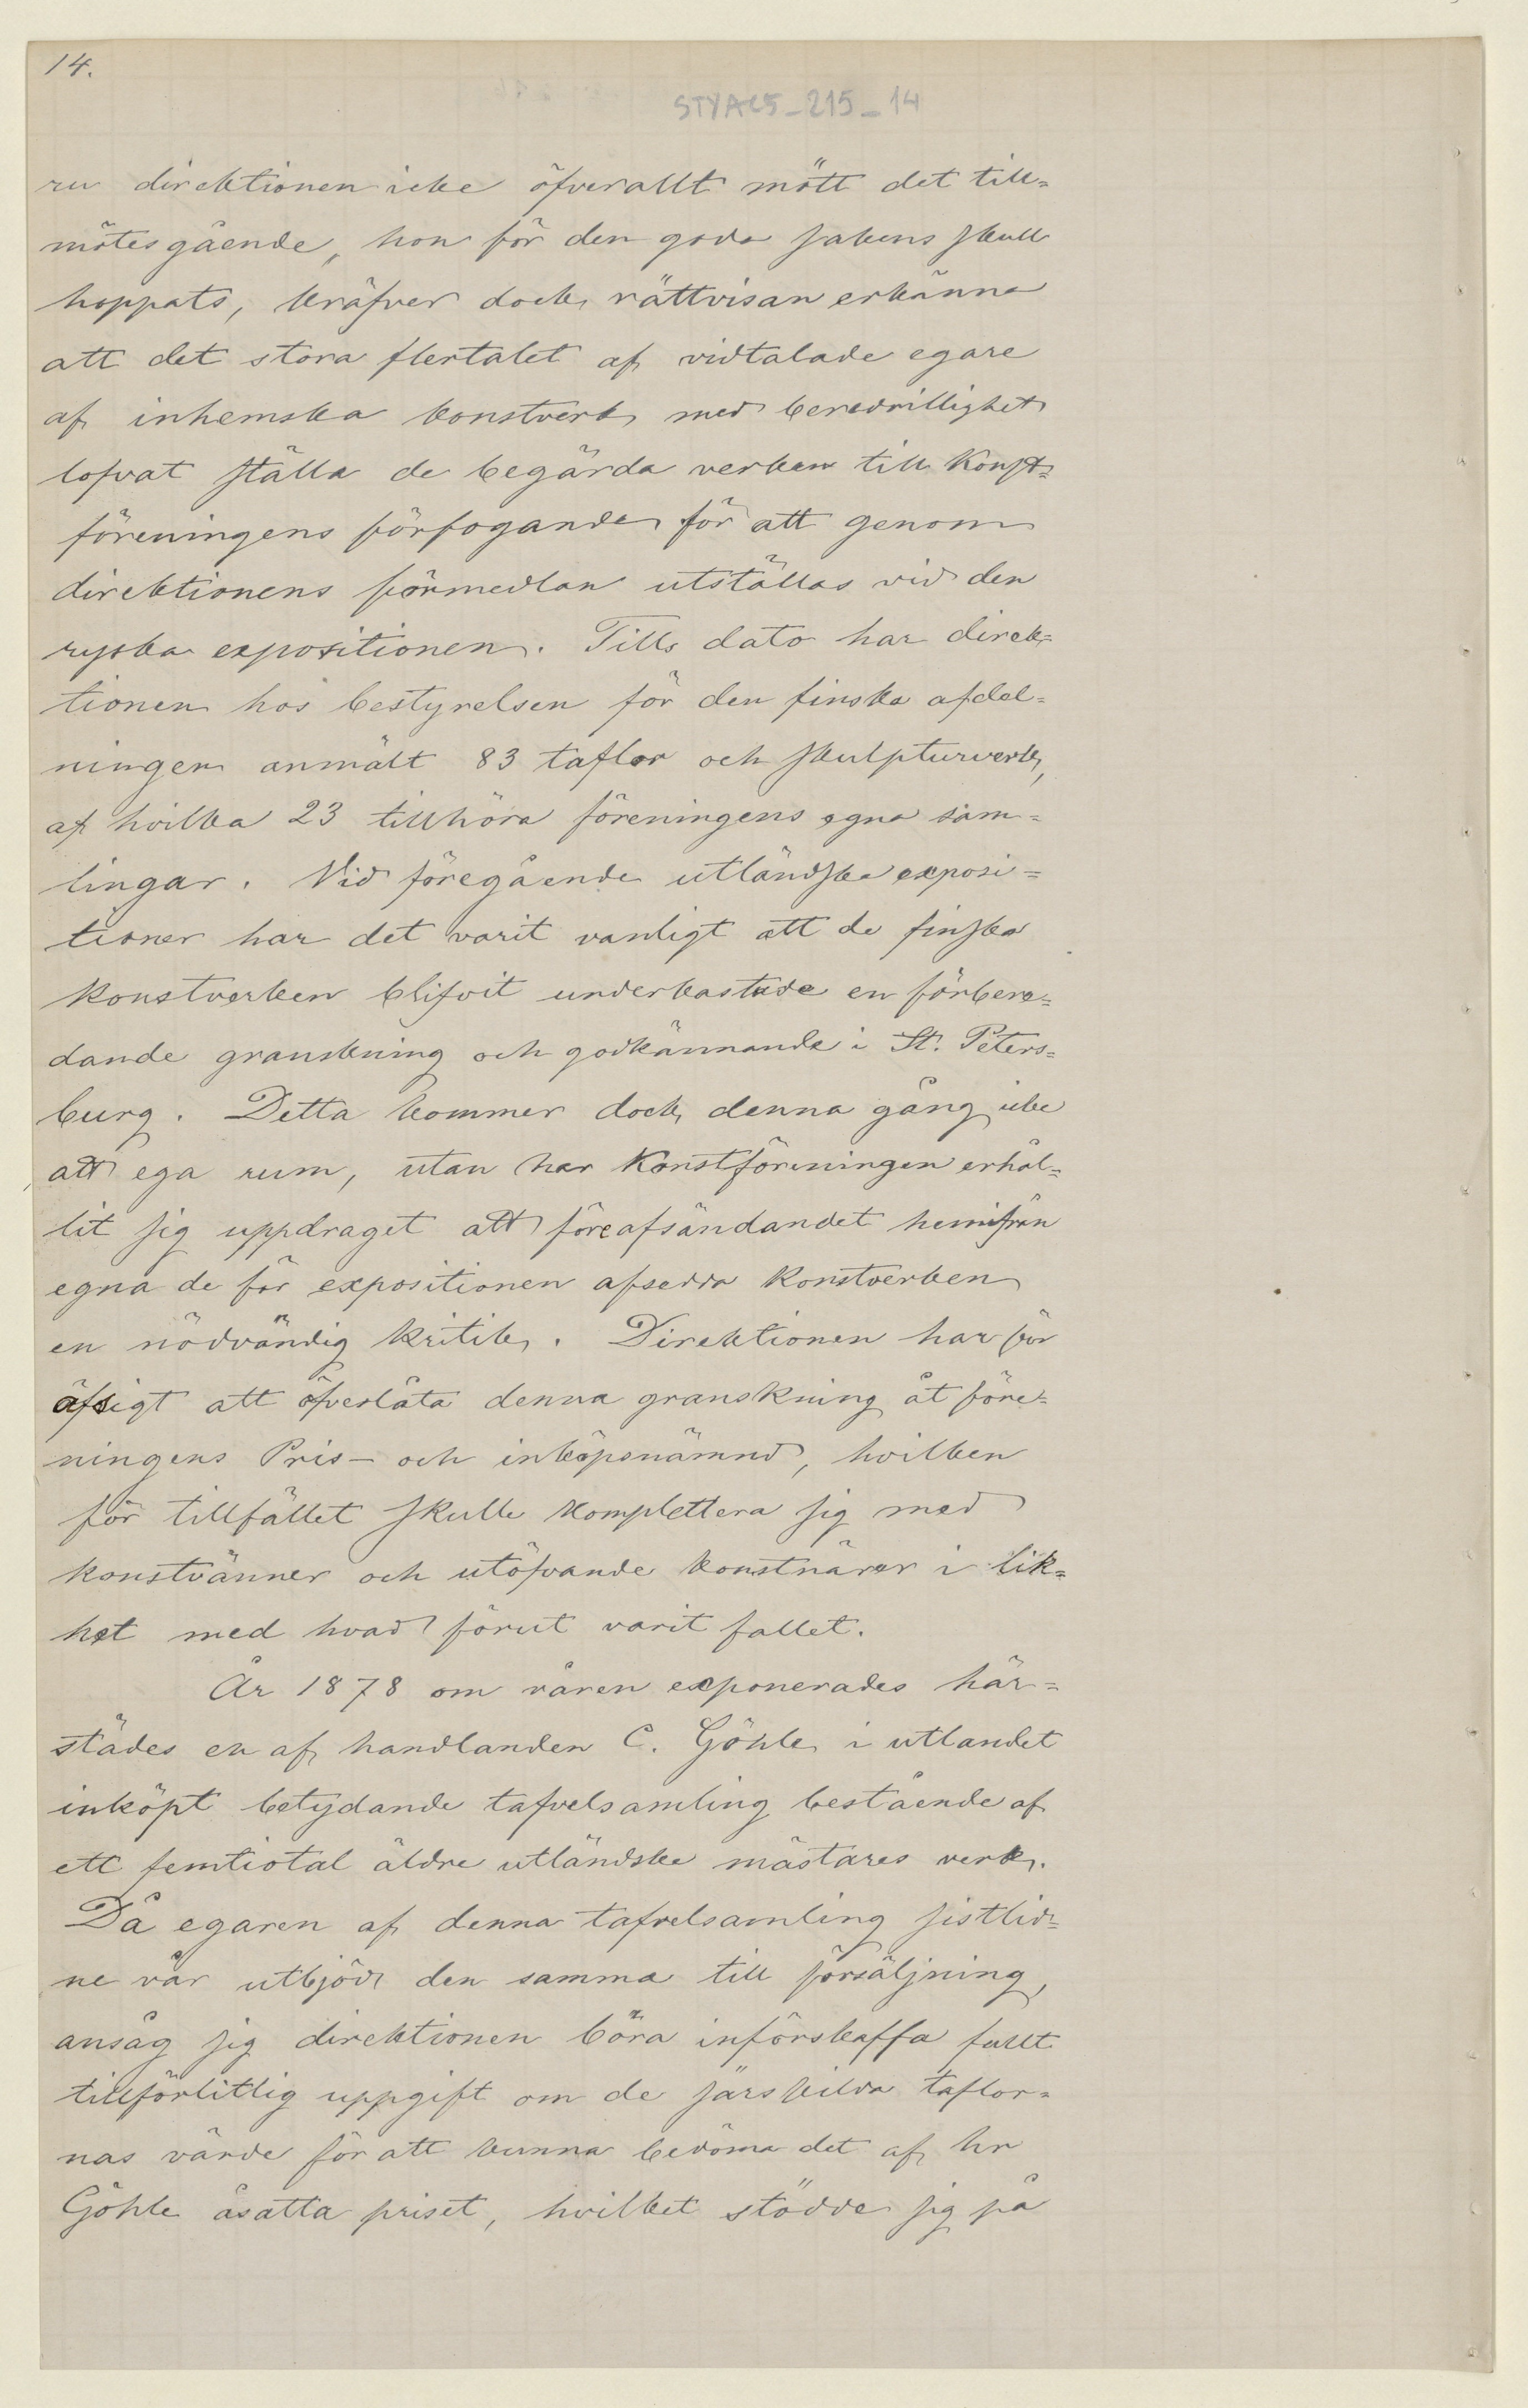 14.
STYALS_215_14
ru direktionen icke öfverallt mött det till=
mötesgående, hon för den goda sakens skull
hoppats, kräfver dock rättvisan erkänna
att det stora flertalet af vidtalade egare
af inhemska konstverk med beredvillighet
lofvat ställa de begärda verken till Konst=
föreningens förfogande för att genom
direktionens förmedlan utställas vid den
ryska expositionen. Tills dato har direk=
tionen hos bestyrelsen för den finska afdel=
ningen anmält 83 taflor och skulpturverk,
af hvilka 23 tillhöra föreningens egna sam=
lingar. Vid föregående utländska exposi=
tioner har det varit vanligt att de finska
konstverken blifvit underkastade en förbere=
dande granskning och godkännande i St. Peters=
burg. Detta kommer dock denna gång icke
att ega rum, utan har Konstföreningen erhål=
lit sig uppdraget att före afsändandet hemifrån
egna de för expositionen afsedda konstverken
en nödvändig kritik. Direktionen har för
afsigt att öfverlåta denna granskning åt före=
ningens Pris- och inköpsnämnd, hvilken
för tillfället skulle komplettera sig med
konstvänner och utöfvande konstnärer i lik=
het med hvad förut varit fallet.
År 1878 om våren exponerades här=
städes en af handlanden C. Göhle i utlandet
inköpt betydande tafvelsamling bestående af
ett femtiotal äldre utländska mästares verk.
Då egaren af denna tafvelsamling sistlid=
ne vår utbjöd den samma till försäljning,
ansåg sig direktionen böra införskaffa fullt
tillförlitlig uppgift om de särskilda taflor=
nas värde för att kunna bedöma det af hr
Göhle åsatta priset, hvilket stödde sig på